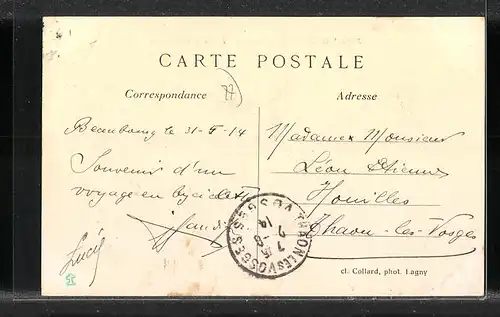 CARTE POSTALE
Correspondance
77
Adresse
Beaubourg le 31-5-14
Souvenir d'un
voyage en biciclette
Lucie
Madame & Monsieur
Léon Etienne
Houilles
Thaon-les-Vosges
THAON LES VOSGES
VOSGES
cl. Collard, phot. Lagny